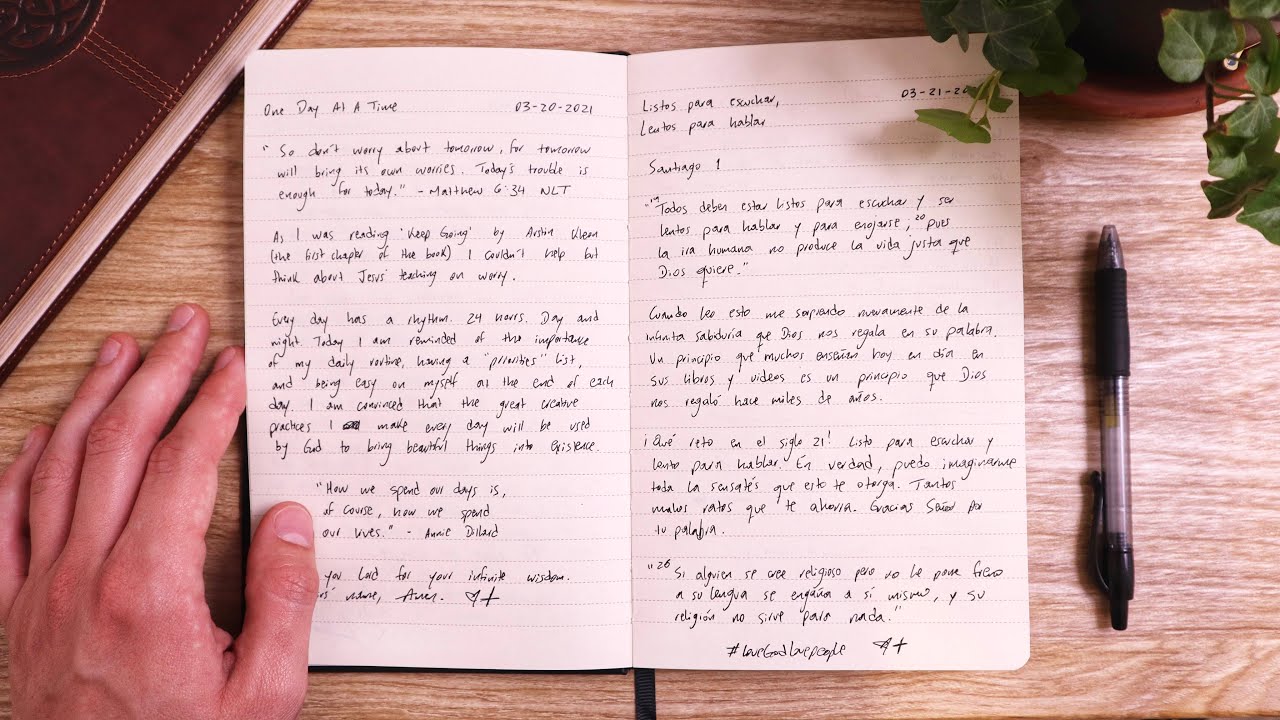 One Day At A Time 03-20-2021
"So don't worry about tomorrow, for tomorrow
will bring its own worries. Today's trouble is
enough for today." - Matthew 6:34 NLT
As I was reading 'Keep Going' by Austin Kleon
(the first chapter of the book) I couldn't help but
think about Jesus' teaching on worry.
Every day has a rhythm. 24 hours. Day and
night. Today I am reminded of the importance
of my daily routine, having a "priorities" list,
and being easy on myself at the end of each
day. I am convinced that the great creative
practices I make every day will be used
by God to bring beautiful things into existence
"How we spend our days is,
of course, how we spend
our lives." - Annie Dillard
you Lord for your infinite wisdom.
name, Amen.
Listos para escuchar, 03-21-20
Lentos para hablar
Santiago 1
"19 Todos deben estar listos para escuchar y ser
lentos para hablar y para enojarse; 20 pues
la ira humana no produce la vida justa que
Dios quiere."
Cuando leo esto me sorprendo nuevamente de la
infinita sabiduría que Dios nos regala en su palabra.
Un principio que muchos enseñan hoy en día en
sus libros y videos es un principio que Dios
nos regaló hace miles de años.
¡Qué reto en el siglo 21! Listo para escuchar y
lento para hablar. En verdad, puedo imaginarme
toda la sensatez que esto te otorga. Tantos
malos ratos que te ahorra. Gracias Señor por
tu palabra.
"26 Si alguien se cree religioso pero no le pone freno
a su lengua se engaña a sí mismo, y su
religión no sirve para nada."
#LoveGodLovePeople